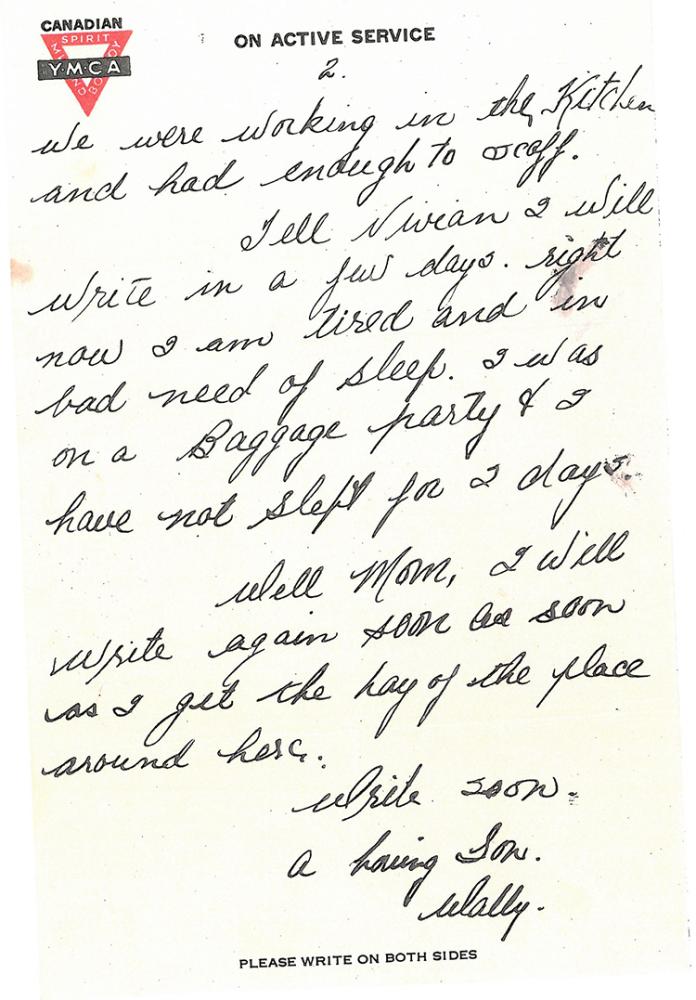 CANADIAN
SPIRIT
Y·M·C·A
MIND
BODY
ON ACTIVE SERVICE
2.
We were working in the Kitchen
and had enough to scoff.
Tell Vivian I will
write in a few days. right
now I am tired and in
bad need of sleep. I was
on a Baggage party & I
have not slept for 2 days.
Well Mom, I will
write again soon as soon
as I get the hay of the place
around here.
Write soon.
a loving Son.
Wally.
PLEASE WRITE ON BOTH SIDES